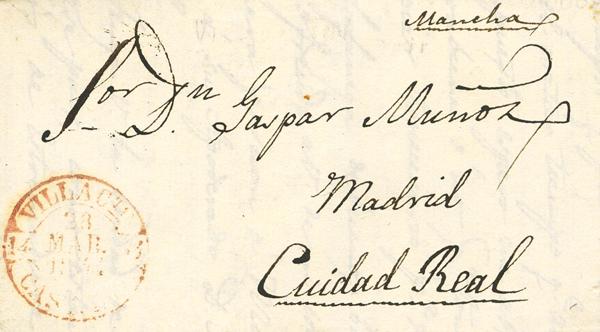 Mancha
Sor Dn. Gaspar Muñoz
Madrid
Cuidad Real
VILLACA.
28
MAR.